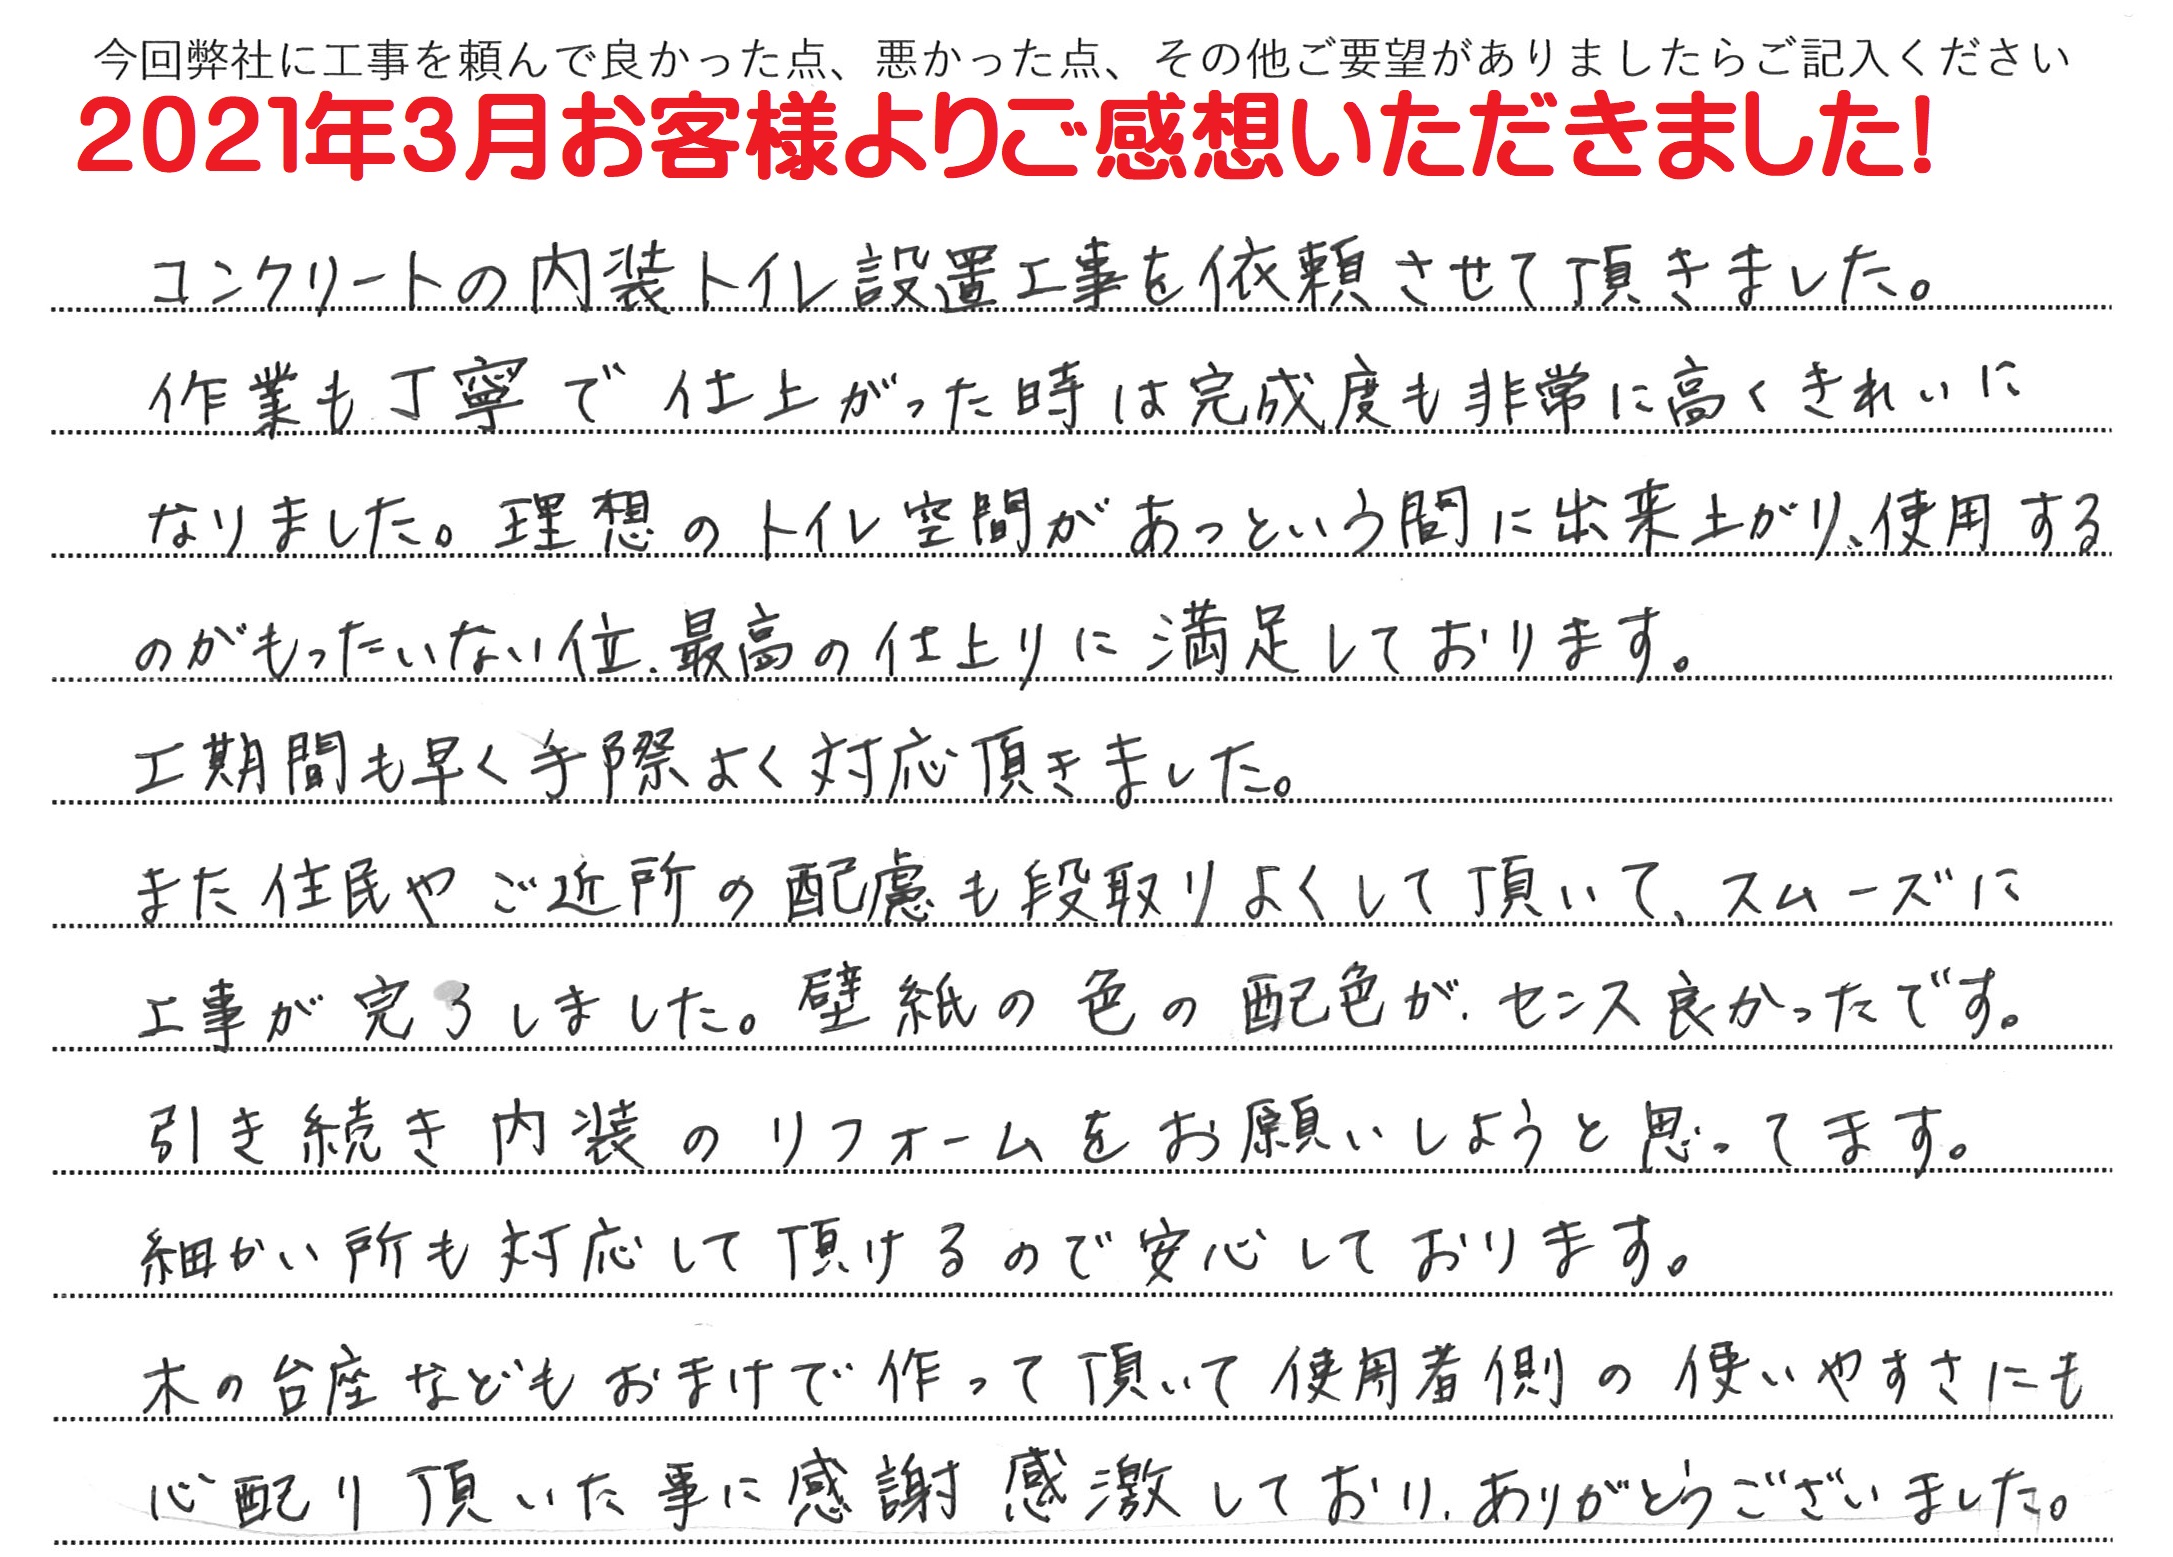 今回弊社に工事を頼んで良かった点、悪かった点、その他ご要望がありましたらご記入ください
2021年3月お客様よりご感想いただきました!
コンクリートの内装トイレ設置工事を依頼させて頂きました。
作業も丁寧で仕上がった時は完成度も非常に高くきれいに
なりました。理想のトイレ空間があっという間に出来上がり、使用する
のがもったいない位、最高の仕上りに満足しております。
工期間も早く手際よく対応頂きました。
また住民やご近所の配慮も段取りよくして頂いて、スムーズに
工事が完了しました。壁紙の色の配色が、センス良かったです。
引き続き内装のリフォームをお願いしようと思ってます。
細かい所も対応して頂けるので安心しております。
木の台座などもおまけで作って頂いて使用者側の使いやすさにも
心配り頂いた事に感謝感激しており、ありがとうございました。